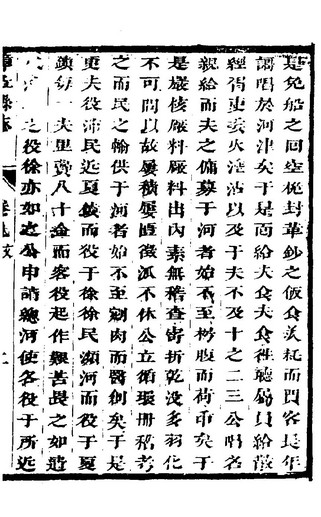 是免船之回空梔封葦鈔之飯食美耗而門客長年
謳唱於河津矣于是面給夫食夫食往聽屬員給散
經胥吏丟火活沾以及于夫不及十之二三公唱名
親給而夫之傭募于河者始不至枵腹而荷帀矣于
是嚴核廠料廠料出內素無稽查寄折乾沒多羽化
不可問以故屢積屢匱徵派不休公立循環冊稽考
之而民之輸供于河者始不至剜肉而醫創矣于是
更夫役沛民近夏鎮而役于徐徐民瀕河而役于夏
鎮每一夫里費八十金而客役起作艱苦畏之如道
之役徐亦如之公申請總河使各役于所近